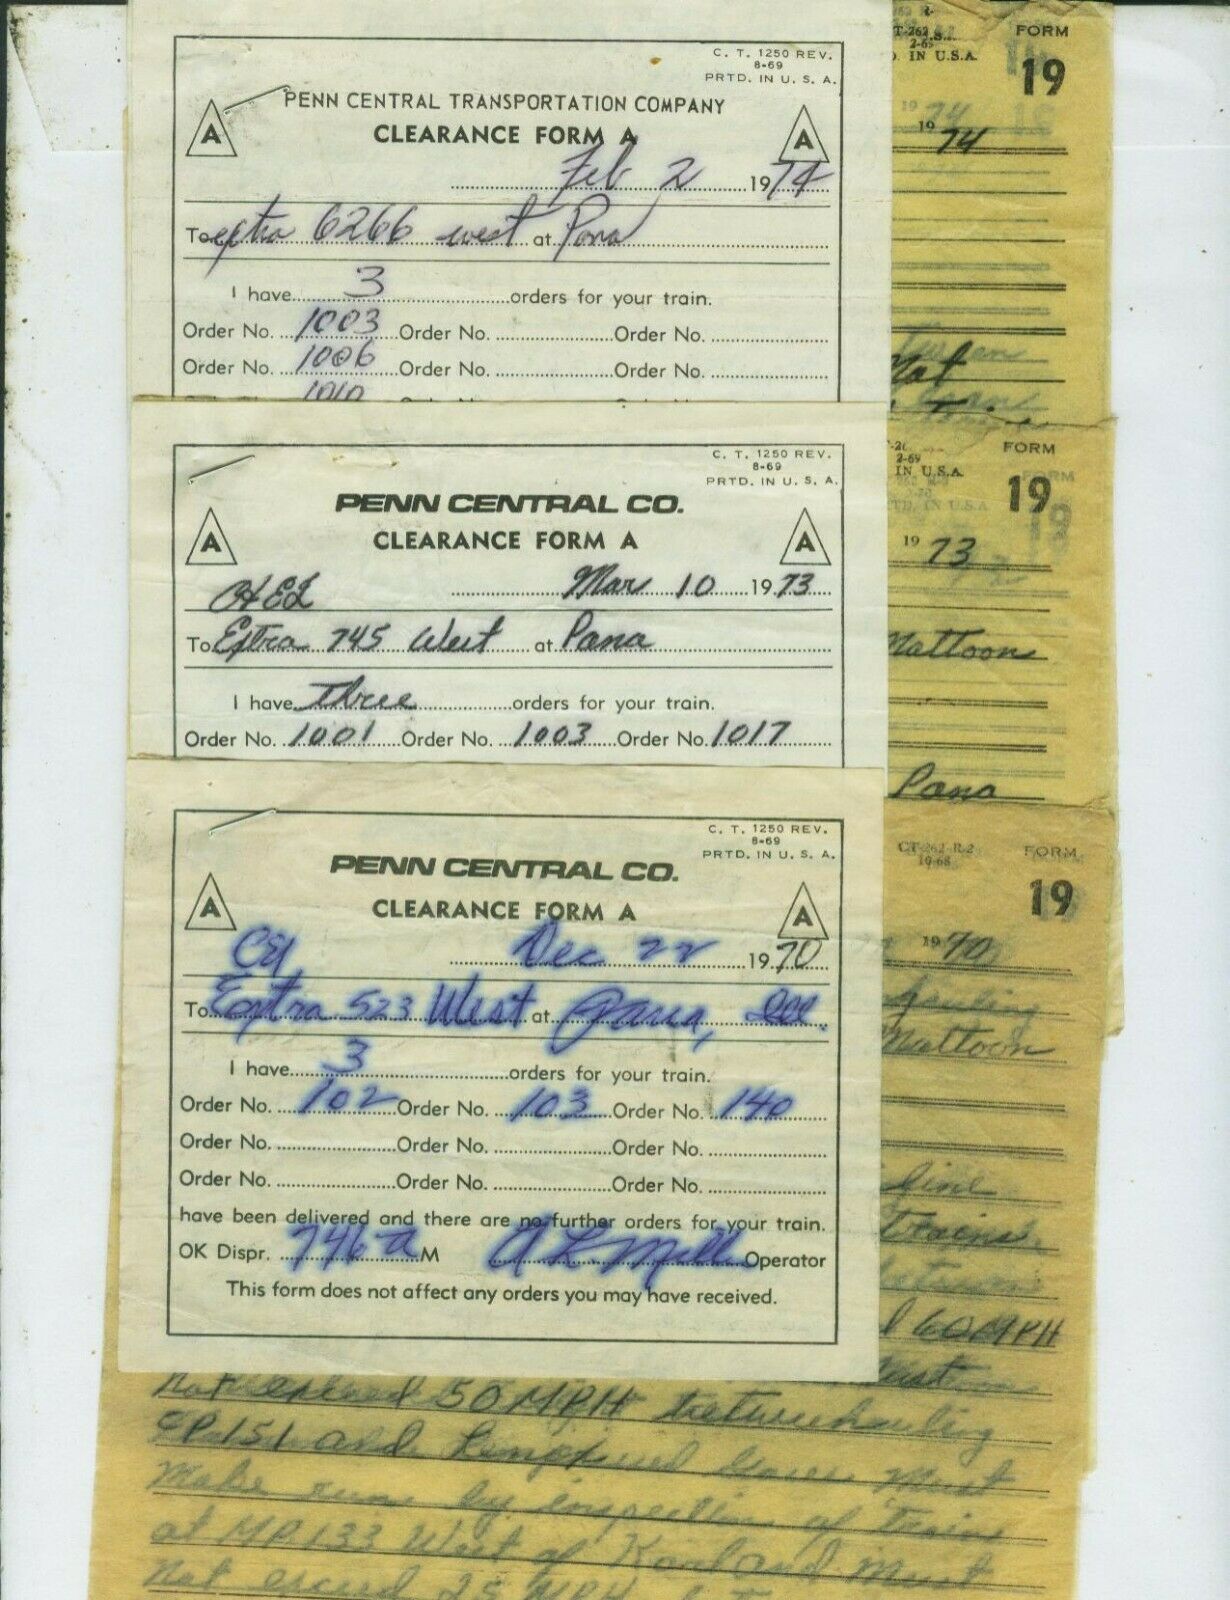 C. T. 1250 REV.
8-69
PRTD. IN U. S. A.
PENN CENTRAL TRANSPORTATION COMPANY
A CLEARANCE FORM A A
Feb 2 1974
To extra 6266 west at Pana
I have 3 orders for your train.
Order No. 1003 Order No. Order No.
Order No. 1006 Order No. Order No.
1010
FORM
IN U.S.A.
19
1974
1974
Mat
C. T. 1250 REV.
8-69
PRTD. IN U. S. A.
PENN CENTRAL CO.
A CLEARANCE FORM A A
Mar 10 1973
To Extra 745 West at Pana
I have Three orders for your train.
Order No. 1001 Order No. 1003 Order No. 1017
FORM
2-69
IN U.S.A.
19
FORM
19
1973
Mattoon
Pana
C. T. 1250 REV.
8-69
PRTD. IN U. S. A.
PENN CENTRAL CO.
A CLEARANCE FORM A A
Dec 22 1970
To Extra 523 West at Pana, Ill.
I have 3 orders for your train.
Order No. 102 Order No. 103 Order No. 140
Order No. Order No. Order No.
Order No. Order No. Order No.
have been delivered and there are no further orders for your train.
OK Dispr. 746 a M Operator
This form does not affect any orders you may have received.
CT-262-R-2
10-68
FORM
19
1970
hauling
Mattoon
line
trains
60 MPH
Must
Not exceed 50 MPH
CP 151 and Must
Make run by inspection of train
at MP 133 West of Must
Not exceed 25 MPH